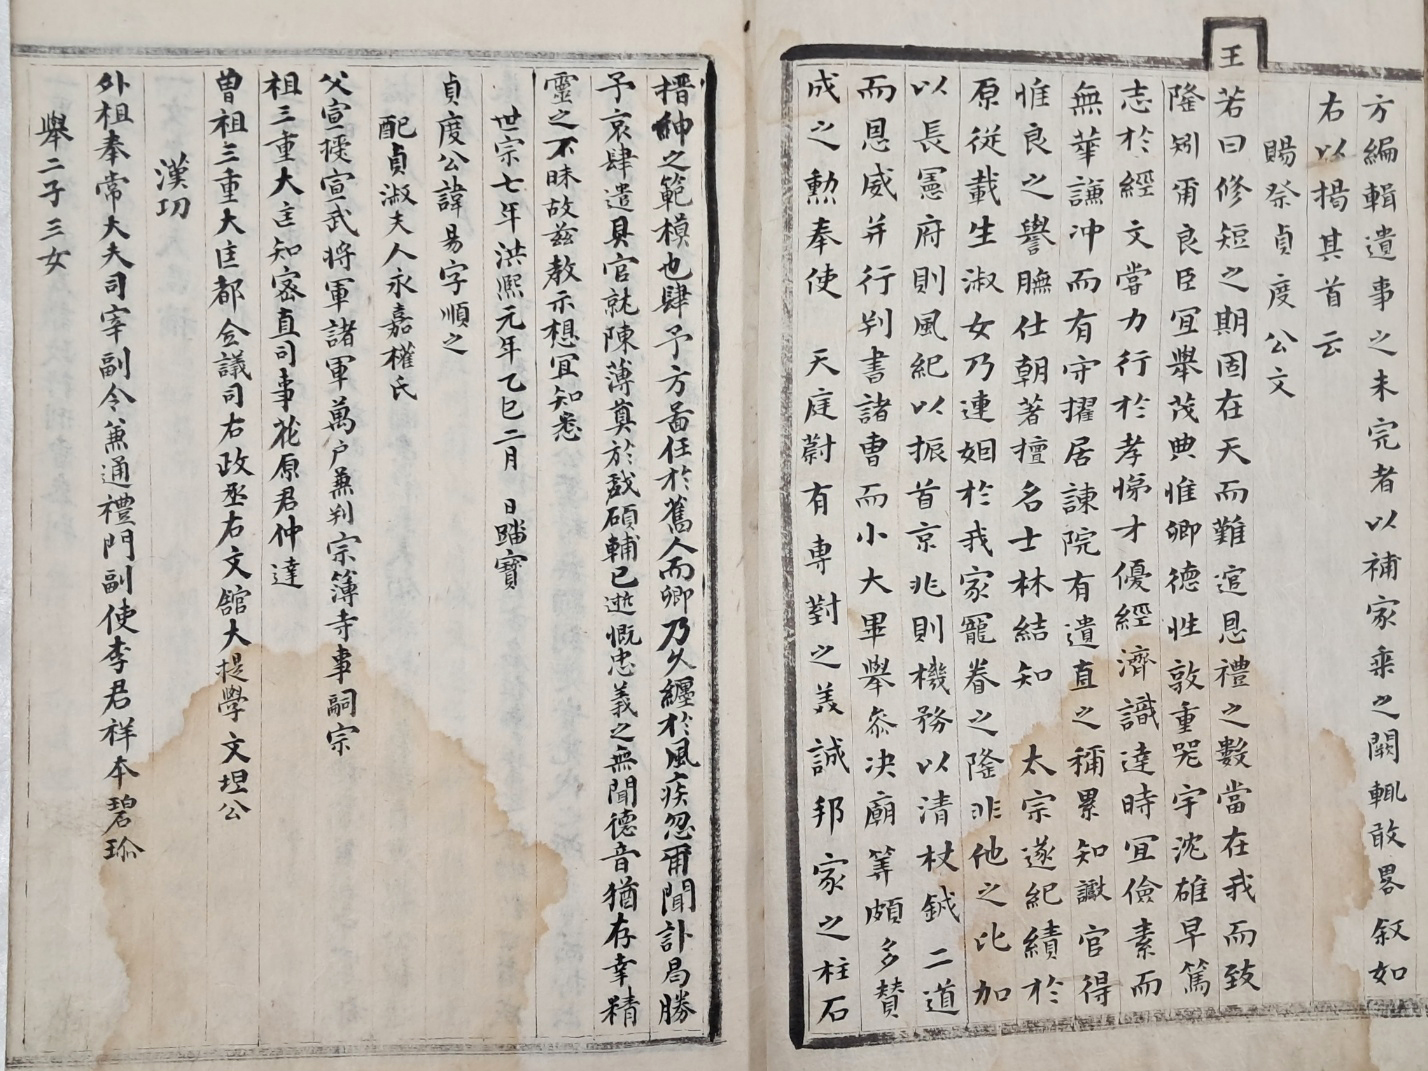 方編輯遺事之未完者以補家乘之闕輒敢畧叙如
右以揭其首云
賜祭貞度公文
王若曰修短之期固在天而難諠恩禮之數當在我而致
隆矧甭良臣宜舉茂典惟卿德性敦重器宇沈雄早篤
志於經文嘗力行於孝悌才優經濟識達時宜儉素而
無華謙冲而有守擢居諫院有遺直之稱累知讞官得
惟良之譽膴仕朝著擅名士林結知 太宗遂紀績於
原從載生淑女乃連姻於我家寵眷之隆非他之比加
以長憲府則風紀以振首京兆則機務以清杖鉞二道
而恩威并行判書諸曹而小大畢舉叅决廟筭頗多贊
成之勲奉使 天庭蔚有専對之美誠邦家之柱石
搢紳之範模也肆予方啚任於舊人而卿乃久纏於風疾忽甭聞訃曷勝
予哀肆遣具官就陳薄奠於戱碩輔已逝慨忠義之無聞德音猶存幸精
靈之不昧故玆教示想宜知悉
世宗七年洪熈元年乙巳二月 日踏寶
貞度公諱昜字順之
配貞淑夫人永嘉權氏
父宣授宣武将軍諸軍萬户兼判宗簿寺事嗣宗
祖三重大匡知密直司事花原君仲達
曽祖三重大匡都僉議司右政丞右文舘大提學文坦公
漢功
外祖奉常大夫司宰副令兼通禮門副使李君祥本碧瑜
舉二子三女